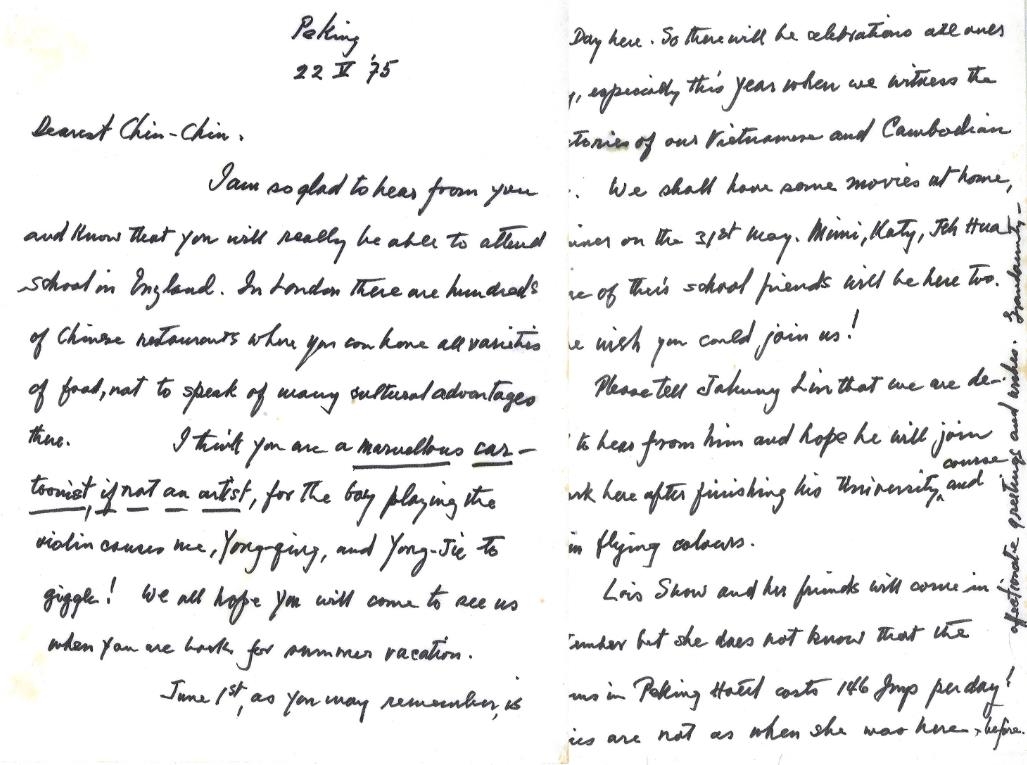 Peking
22 V '75
Dearest Chin-Chin.
I am so glad to hear from you
and know that you will really be able to attend
school in England. In London there are hundreds
of Chinese restaurants where you can have all varieties
of food, not to speak of many cultural advantages
there. I think you are a marvellous car-
toonist, if not an artist, for the boy playing the
violin causes me, Yong-ging, and Yong-Jie to
giggle! We all hope you will come to see us
when you are back for summer vacation.
June 1st, as you may remember, is
Day here. So there will be celebrations all over
y, especially this year when we witness the
tories of our Vietnamese and Cambodian
. We shall have some movies at home,
inner on the 31st May. Mimi, Katy, Jeh Hua
me of their school friends will be here too.
e wish you could join us!
Please tell Johnny Lin that we are de-
to hear from him and hope he will join
rk here after finishing his University course and
in flying colours.
Lois Snow and her friends will come in
tember but she does not know that the
ms in Peking Hotel costs 146 Jmp per day!
ies are not as when she was here before.
affectionate greetings and wishes.